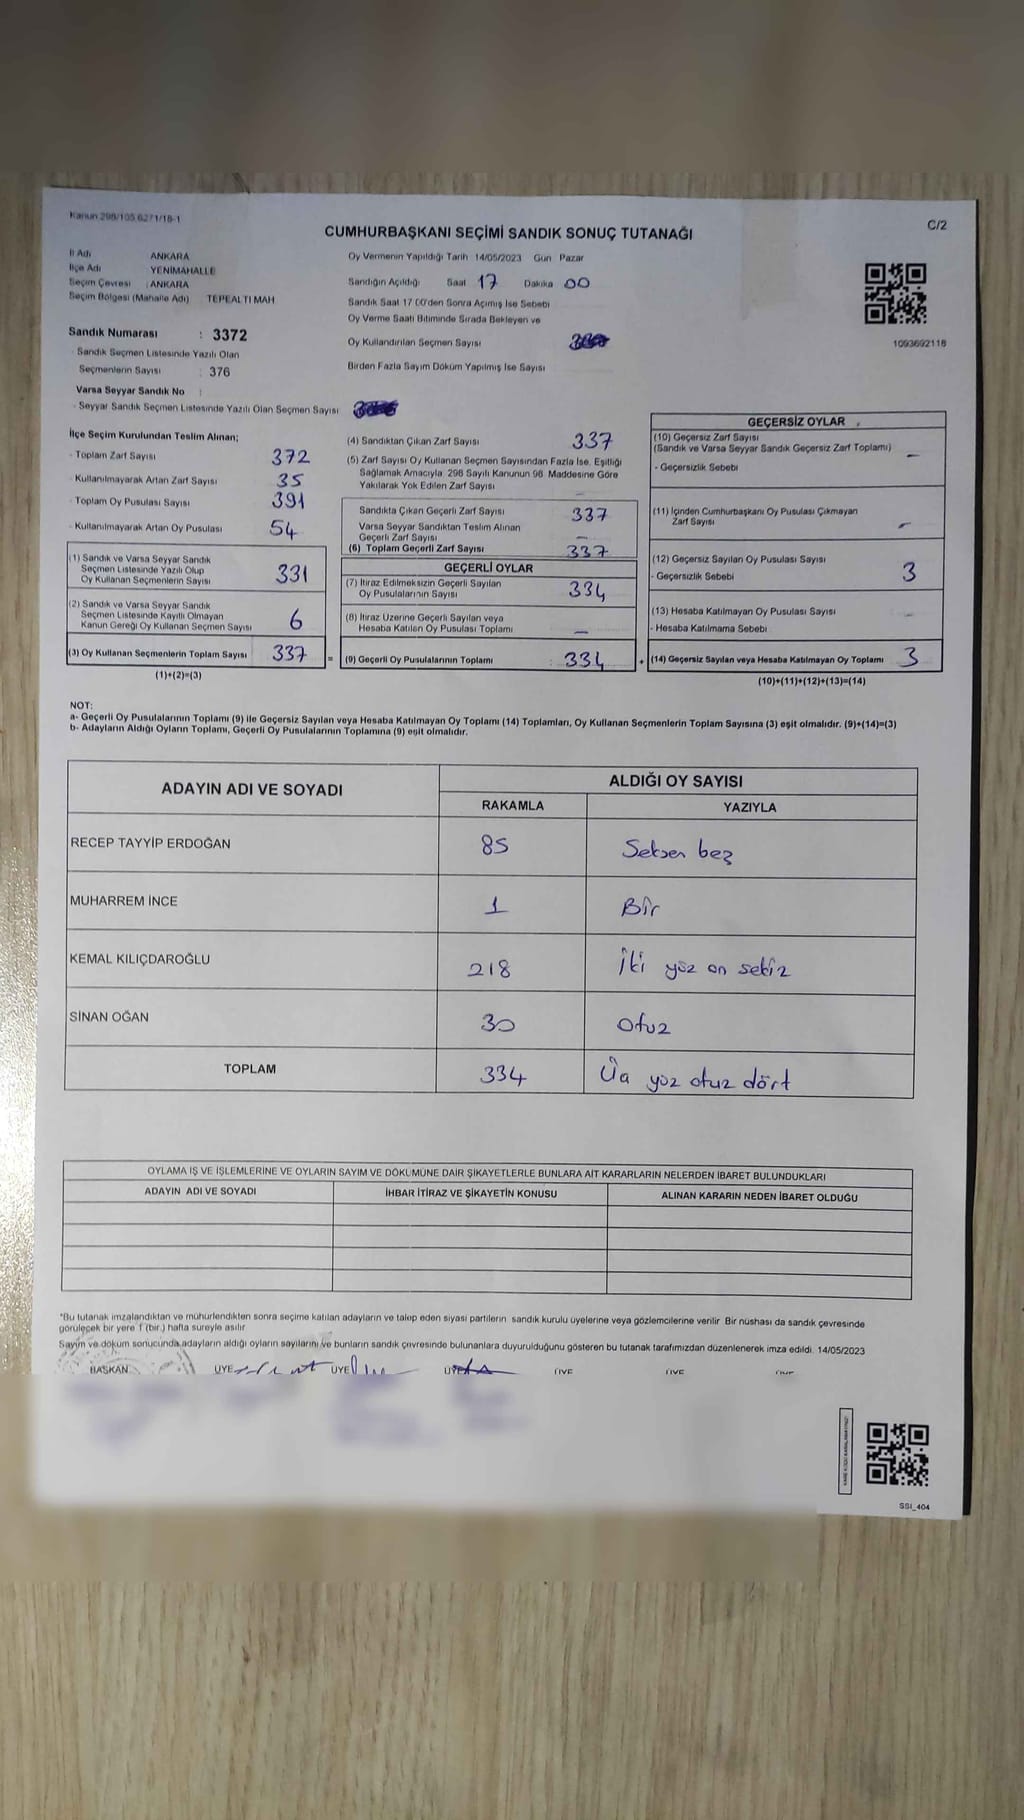 Kanun 298/105 6271/18-1
C/2
CUMHURBAŞKANI SEÇİMİ SANDIK SONUÇ TUTANAĞI
İl Adı ANKARA
İlçe Adı YENİMAHALLE
Seçim Çevresi : ANKARA
Seçim Bölgesi (Mahalle Adı) TEPEALTI MAH
Oy Vermenin Yapıldığı Tarih 14/05/2023 Gün Pazar
Sandığın Açıldığı Saat 17 Dakika 00
Sandık Saat 17 00'den Sonra Açımış İse Sebebi
Oy Verme Saati Bitiminde Sırada Bekleyen ve
Oy Kullandırılan Seçmen Sayısı
Birden Fazla Sayım Döküm Yapılmış İse Sayısı
1093692118
Sandık Numarası : 3372
- Sandık Seçmen Listesinde Yazılı Olan
Seçmenlerin Sayısı : 376
Varsa Seyyar Sandık No :
- Seyyar Sandık Seçmen Listesinde Yazılı Olan Seçmen Sayısı
İlçe Seçim Kurulundan Teslim Alınan;
- Toplam Zarf Sayısı 372
- Kullanılmayarak Artan Zarf Sayısı 35
- Toplam Oy Pusulası Sayısı 391
- Kullanılmayarak Artan Oy Pusulası 54
(1) Sandık ve Varsa Seyyar Sandık
Seçmen Listesinde Yazılı Olup
Oy Kullanan Seçmenlerin Sayısı 331
(2) Sandık ve Varsa Seyyar Sandık
Seçmen Listesinde Kayıtlı Olmayan
Kanun Gereği Oy Kullanan Seçmen Sayısı 6
(3) Oy Kullanan Seçmenlerin Toplam Sayısı 337 =
(1)+(2)=(3)
(4) Sandıktan Çıkan Zarf Sayısı 337
(5) Zarf Sayısı Oy Kullanan Seçmen Sayısından Fazla İse, Eşitliği
Sağlamak Amacıyla 298 Sayılı Kanunun 98. Maddesine Göre
Yakılarak Yok Edilen Zarf Sayısı —
Sandıkta Çıkan Geçerli Zarf Sayısı 337
Varsa Seyyar Sandıktan Teslim Alınan
Geçerli Zarf Sayısı —
(6) Toplam Geçerli Zarf Sayısı 337
GEÇERLİ OYLAR
(7) İtiraz Edilmeksizin Geçerli Sayılan
Oy Pusulalarının Sayısı 334
(8) İtiraz Üzerine Geçerli Sayılan veya
Hesaba Katılan Oy Pusulası Toplamı —
(9) Geçerli Oy Pusulalarının Toplamı : 334 +
GEÇERSİZ OYLAR
(10) Geçersiz Zarf Sayısı
(Sandık ve Varsa Seyyar Sandık Geçersiz Zarf Toplamı) —
- Geçersizlik Sebebi
(11) İçinden Cumhurbaşkanı Oy Pusulası Çıkmayan
Zarf Sayısı —
(12) Geçersiz Sayılan Oy Pusulası Sayısı 3
- Geçersizlik Sebebi
(13) Hesaba Katılmayan Oy Pusulası Sayısı —
- Hesaba Katılmama Sebebi
(14) Geçersiz Sayılan veya Hesaba Katılmayan Oy Toplamı 3
(10)+(11)+(12)+(13)=(14)
NOT:
a- Geçerli Oy Pusulalarının Toplamı (9) ile Geçersiz Sayılan veya Hesaba Katılmayan Oy Toplamı (14) Toplamları, Oy Kullanan Seçmenlerin Toplam Sayısına (3) eşit olmalıdır. (9)+(14)=(3)
b- Adayların Aldığı Oyların Toplamı, Geçerli Oy Pusulalarının Toplamına (9) eşit olmalıdır.
ADAYIN ADI VE SOYADI ALDIĞI OY SAYISI
RAKAMLA YAZIYLA
RECEP TAYYİP ERDOĞAN 85 Seksen beş
MUHARREM İNCE 1 Bir
KEMAL KILIÇDAROĞLU 218 İki yüz on sekiz
SİNAN OĞAN 30 Otuz
TOPLAM 334 Üç yüz otuz dört
OYLAMA İŞ VE İŞLEMLERİNE VE OYLARIN SAYIM VE DÖKÜMÜNE DAİR ŞİKAYETLERLE BUNLARA AİT KARARLARIN NELERDEN İBARET BULUNDUKLARI
ADAYIN ADI VE SOYADI İHBAR İTİRAZ VE ŞİKAYETİN KONUSU ALINAN KARARIN NEDEN İBARET OLDUĞU
*Bu tutanak imzalandıktan ve mühürlendikten sonra seçime katılan adayların ve talep eden siyasi partilerin sandık kurulu üyelerine veya gözlemcilerine verilir Bir nüshası da sandık çevresinde
görülecek bir yere 1 (bir ) hafta süreyle asılır
Sayım ve döküm sonucunda adayların aldığı oyların sayılarını ve bunların sandık çevresinde bulunanlara duyurulduğunu gösteren bu tutanak tarafımızdan düzenlenerek imza edildi. 14/05/2023
BAŞKAN ÜYE ÜYE ÜYE ÜYE ÜYE
SSI_404